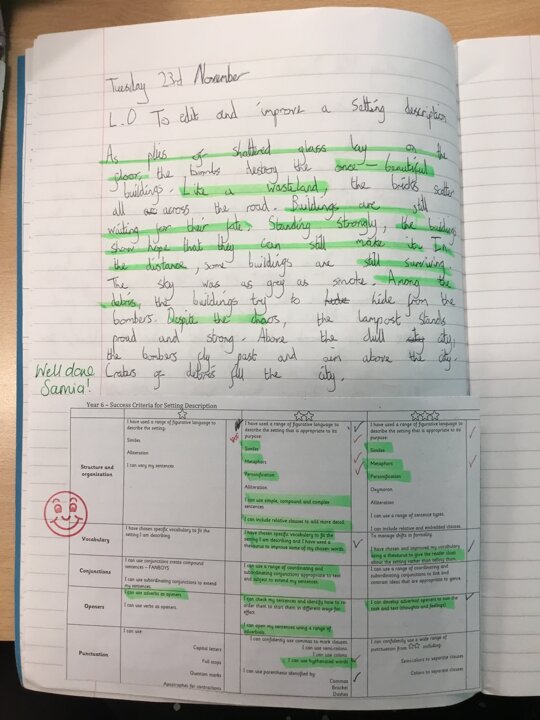 Tuesday 23rd November
L.O To edit and improve a setting description
As piles of shattered glass lay on the
floor, the bombs destroy the once-beautiful
buildings. Like a wasteland, the bricks scatter
all across the road. Buildings are still
waiting for their fate. Standing strongly, the buildings
show hope that they can still make it. In
the distance, some buildings are still surviving.
The sky was as grey as smoke. Among the
debris, the buildings try to hide from the
bombers. Despite the chaos, the lampost stands
proud and strong. Above the dull city,
the bombers fly past and aim above the city.
Crates of debris fill the city.
Well done
Samia!
Year 6 – Success Criteria for Setting Description
Structure and
organisation
I have used a range of figurative language to
describe the setting:
Similes
Alliteration
I can vary my sentences
I have used a range of figurative language to
describe the setting that is appropriate to its
purpose:
Similes
Metaphors
Personification
Alliteration
I can use simple, compound and complex
sentences
I can include relative clauses to add more detail
I have used a range of figurative language to
describe the setting that is appropriate to its
purpose:
Similes
Metaphors
Personification
Oxymoron
Alliteration
I can use a range of sentence types.
I can include relative and embedded clauses.
To manage shifts in formality.
Vocabulary
I have chosen specific vocabulary to fit the
setting I am describing
I have chosen specific vocabulary to fit the
setting I am describing and I have used a
thesaurus to improve some of my chosen words.
I have chosen and improved my vocabulary
using a thesaurus to give the reader clues
about the setting rather than telling them.
Conjunctions
I can use conjunctions create compound
sentences – FANBOYS
I can use subordinating conjunctions to extend
my sentences.
I can use a range of coordinating and
subordinating conjunctions appropriate to text
and subject to extend my sentences.
I can use a range of coordinating and
subordinating conjunctions to link and
contrast ideas that are appropriate to genre.
Openers
I can use adverbs as openers
I can use verbs as openers.
I can check my sentences and identify how to re-
order them to start them in different ways for
effect.
I can open my sentences using a range of
adverbials.
I can develop adverbial openers to suit the
task and text (thoughts and feelings)
Punctuation
I can use:
Capital letters
Full stops
Question marks
Apostrophes for contractions
I can confidently use commas to mark clauses.
I can use semi-colons
I can use colons
I can use hyphenated words
I can use parenthesis identified by:
Commas
Bracket
Dashes
I can confidently use a wide range of
punctuation from including:
Semi-colons to separate clauses
Colons to separate clauses